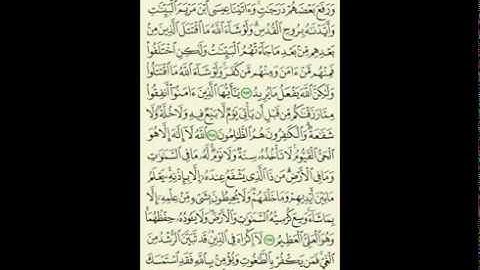 وَرَفَعَ بَعْضَهُمْ دَرَجَٰتٍ وَءَاتَيْنَا عِيسَى ٱبْنَ مَرْيَمَ ٱلْبَيِّنَٰتِ
وَأَيَّدْنَٰهُ بِرُوحِ ٱلْقُدُسِ وَلَوْ شَآءَ ٱللَّهُ مَا ٱقْتَتَلَ ٱلَّذِينَ مِنۢ
بَعْدِهِم مِّنۢ بَعْدِ مَا جَآءَتْهُمُ ٱلْبَيِّنَٰتُ وَلَٰكِنِ ٱخْتَلَفُوا۟
فَمِنْهُم مَّنْ ءَامَنَ وَمِنْهُم مَّن كَفَرَ وَلَوْ شَآءَ ٱللَّهُ مَا ٱقْتَتَلُوا۟
وَلَٰكِنَّ ٱللَّهَ يَفْعَلُ مَا يُرِيدُ ٢٥٣ يَٰٓأَيُّهَا ٱلَّذِينَ ءَامَنُوٓا۟ أَنفِقُوا۟
مِمَّا رَزَقْنَٰكُم مِّن قَبْلِ أَن يَأْتِىَ يَوْمٌ لَّا بَيْعٌ فِيهِ وَلَا خُلَّةٌ وَلَا
شَفَٰعَةٌ وَٱلْكَٰفِرُونَ هُمُ ٱلظَّٰلِمُونَ ٢٥٤ ٱللَّهُ لَآ إِلَٰهَ إِلَّا هُوَ
ٱلْحَىُّ ٱلْقَيُّومُ لَا تَأْخُذُهُۥ سِنَةٌ وَلَا نَوْمٌ لَّهُۥ مَا فِى ٱلسَّمَٰوَٰتِ
وَمَا فِى ٱلْأَرْضِ مَن ذَا ٱلَّذِى يَشْفَعُ عِندَهُۥٓ إِلَّا بِإِذْنِهِۦ يَعْلَمُ
مَا بَيْنَ أَيْدِيهِمْ وَمَا خَلْفَهُمْ وَلَا يُحِيطُونَ بِشَىْءٍ مِّنْ عِلْمِهِۦٓ إِلَّا
بِمَا شَآءَ وَسِعَ كُرْسِيُّهُ ٱلسَّمَٰوَٰتِ وَٱلْأَرْضَ وَلَا يَـُٔودُهُۥ حِفْظُهُمَا
وَهُوَ ٱلْعَلِىُّ ٱلْعَظِيمُ ٢٥٥ لَآ إِكْرَاهَ فِى ٱلدِّينِ قَد تَّبَيَّنَ ٱلرُّشْدُ مِنَ
ٱلْغَىِّ فَمَن يَكْفُرْ بِٱلطَّٰغُوتِ وَيُؤْمِنۢ بِٱللَّهِ فَقَدِ ٱسْتَمْسَكَ